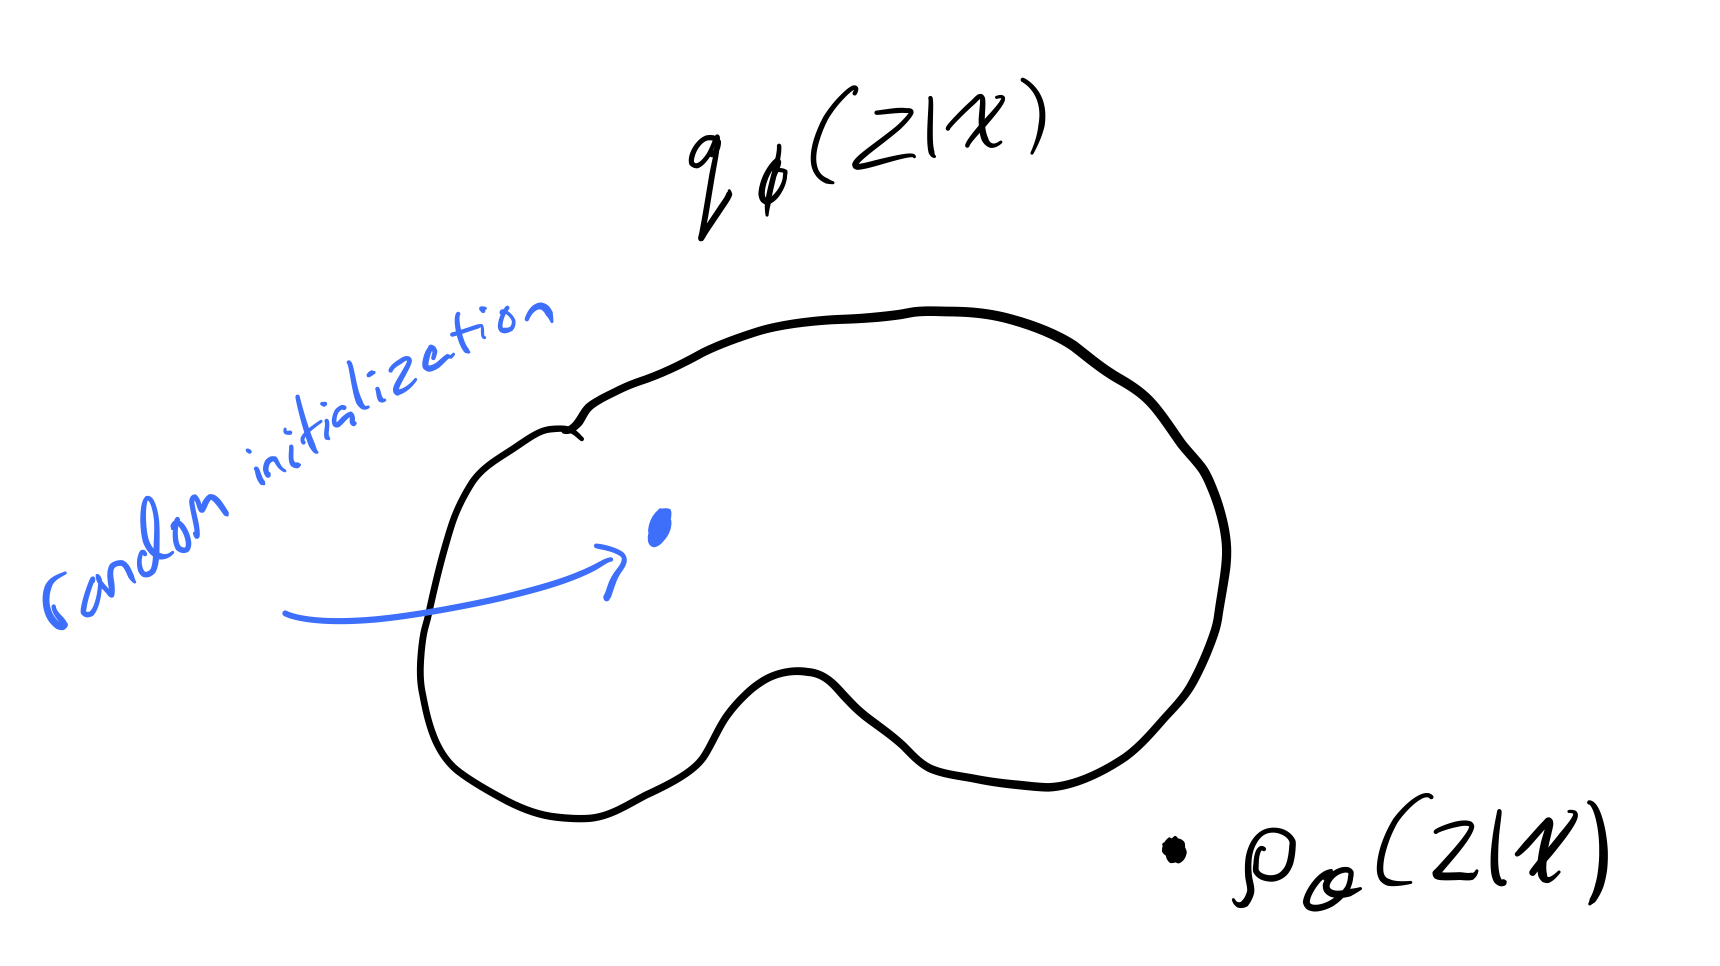 q_ϕ(z|x)
random initialization
p_θ(z|x)